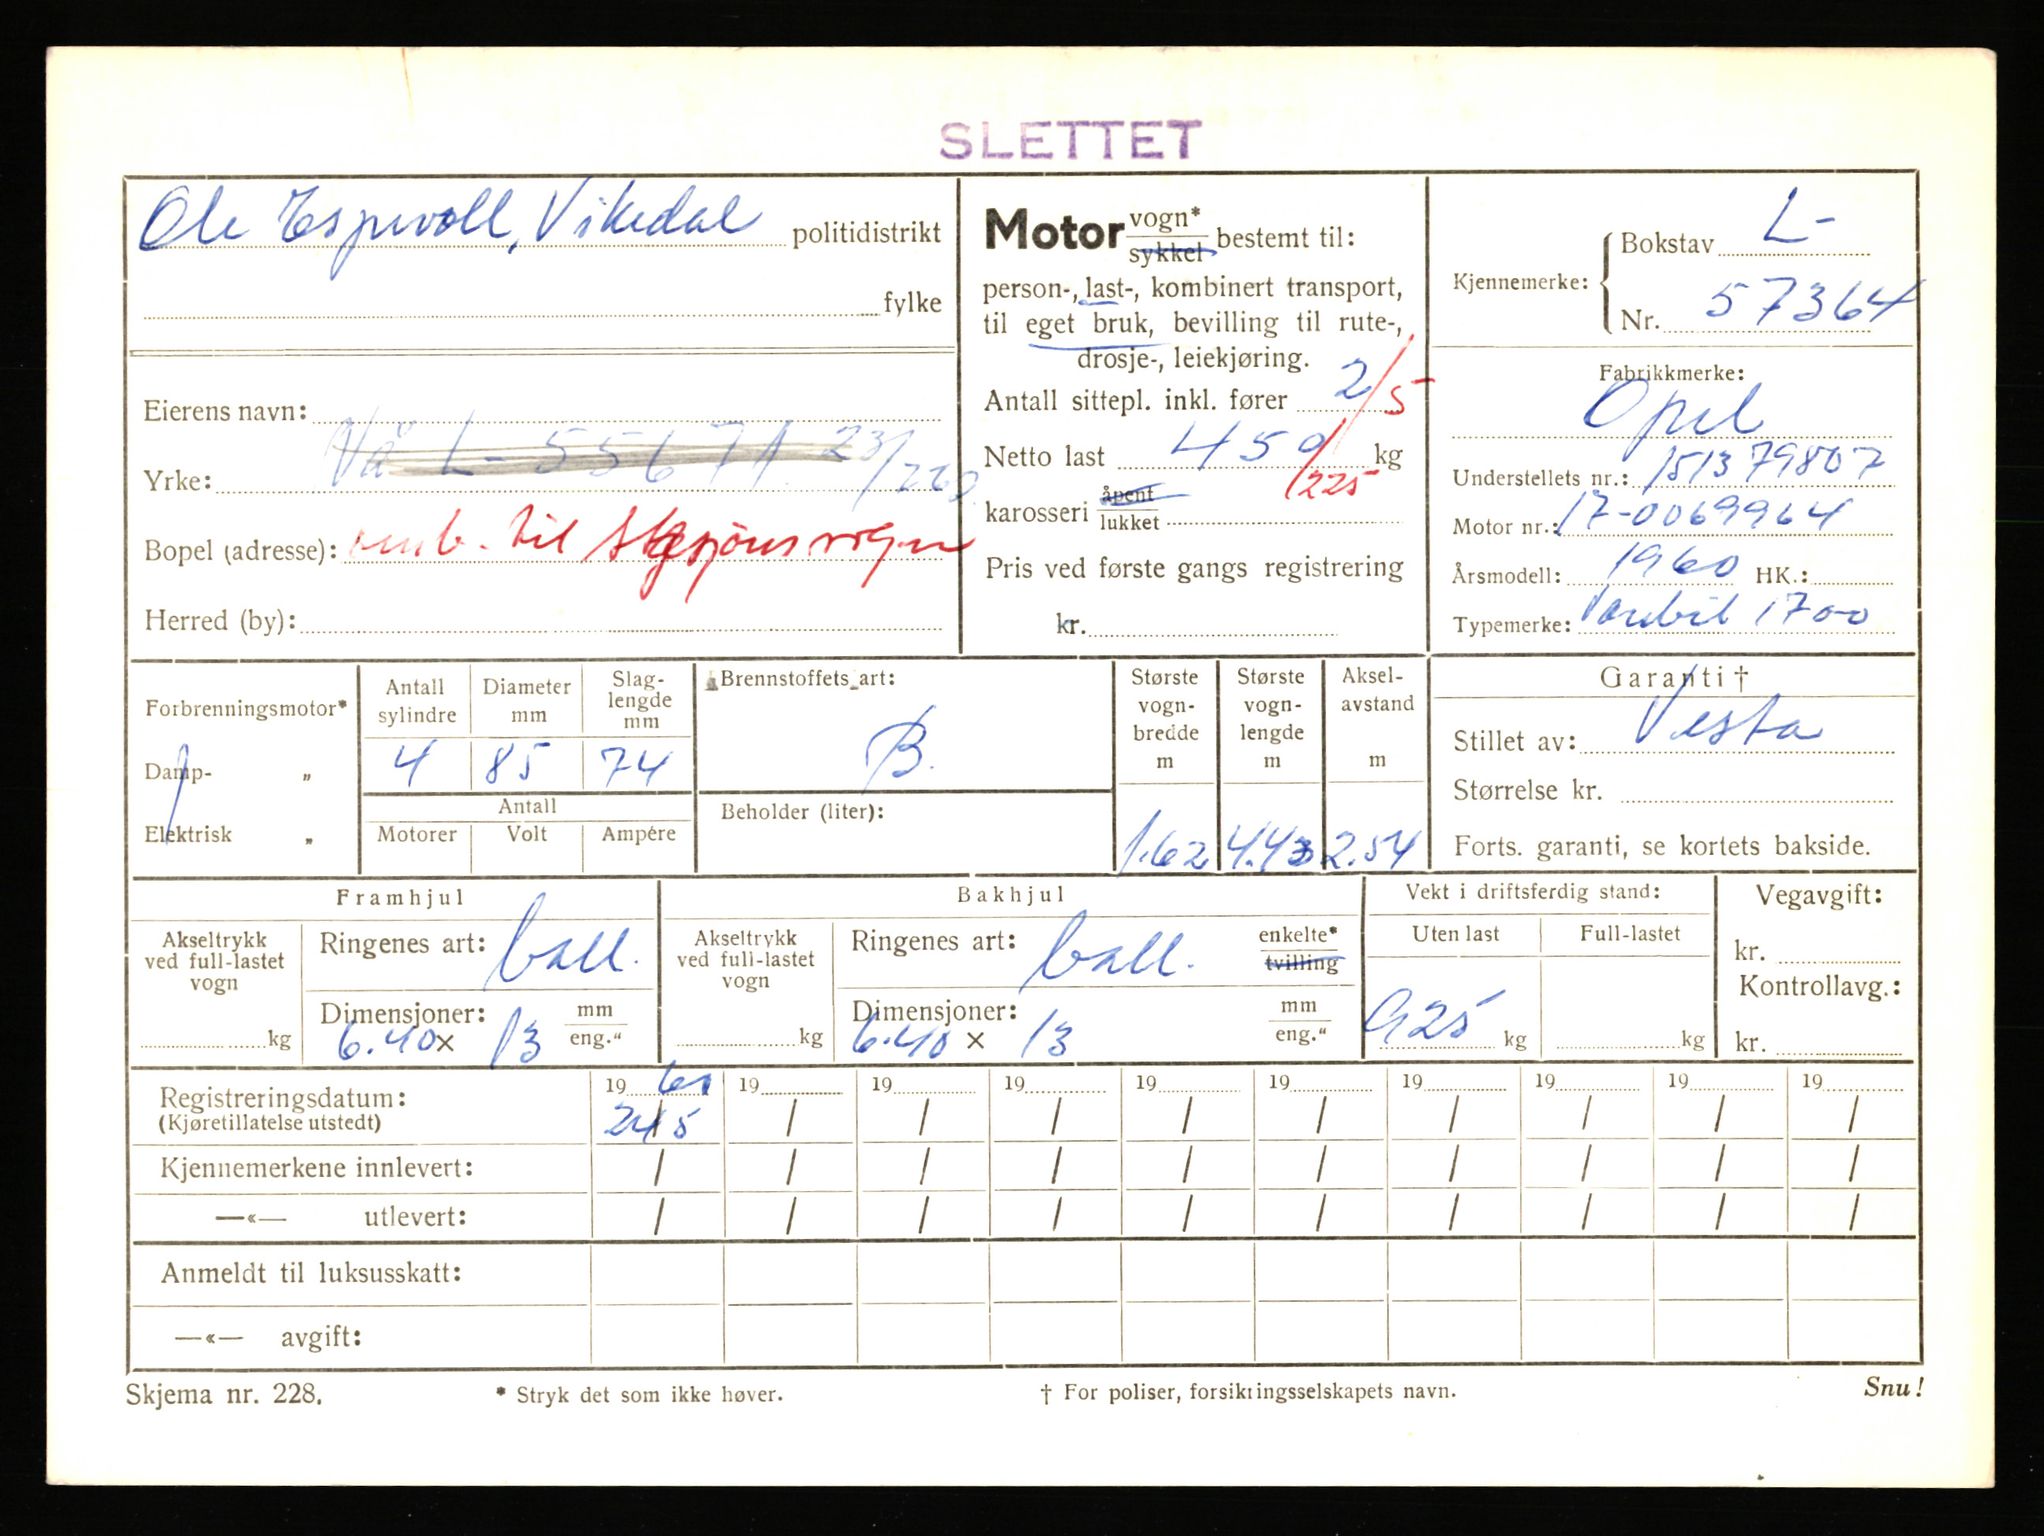 SLETTET
Ole Espevoll, Vikedal politidistrikt
fylke
Eierens navn:
Yrke: Vå L- 55671 23/2 60
Bopel (adresse): omb. til stasjonsvogn
Herred (by):
Motor vogn* sykkel bestemt til:
person-, last-, kombinert transport,
til eget bruk, bevilling til rute-,
drosje-, leiekjøring.
Antall sittepl. inkl. fører 2/5
Netto last 450/225 kg
karosseri åpent lukket
Pris ved første gangs registrering
kr.
Kjennemerke: Bokstav L-
Nr. 57364
Fabrikkmerke:
Opel
Understellets nr.: 151379807
Motor nr.: 17-0069964
Årsmodell: 1960 HK.:
Typemerke: Varebil 1700
Forbrenningsmotor*
Damp- „
Elektrisk „
Antall sylindre Diameter mm Slag-lengde mm
4 85 74
Antall
Motorer Volt Ampére
Brennstoffets art:
B.
Beholder (liter):
Største vogn-bredde m
1.62
Største vogn-lengde m
4.43
Aksel-avstand m
2.54
Garanti †
Stillet av: Vesta
Størrelse kr.
Forts. garanti, se kortets bakside.
Framhjul
Akseltrykk ved full-lastet vogn
kg
Ringenes art: ball.
Dimensjoner: mm
6.40 x 13 eng."
Bakhjul
Akseltrykk ved full-lastet vogn
kg
Ringenes art: ball. enkelte* tvilling
Dimensjoner: mm
6.40 x 13 eng."
Vekt i driftsferdig stand:
Uten last Full-lastet
925 kg kg
Vegavgift:
kr.
Kontrollavg.:
kr.
19 19 19 19 19 19 19 19 19 19
Registreringsdatum:
(Kjøretillatelse utstedt) / / / / / / / / /
Kjennemerkene innlevert: / / / / / / / / / /
—«— utlevert: / / / / / / / / / /
Anmeldt til luksusskatt:
—«— avgift:
Skjema nr. 228. * Stryk det som ikke høver. † For poliser, forsikringsselskapets navn. Snu!